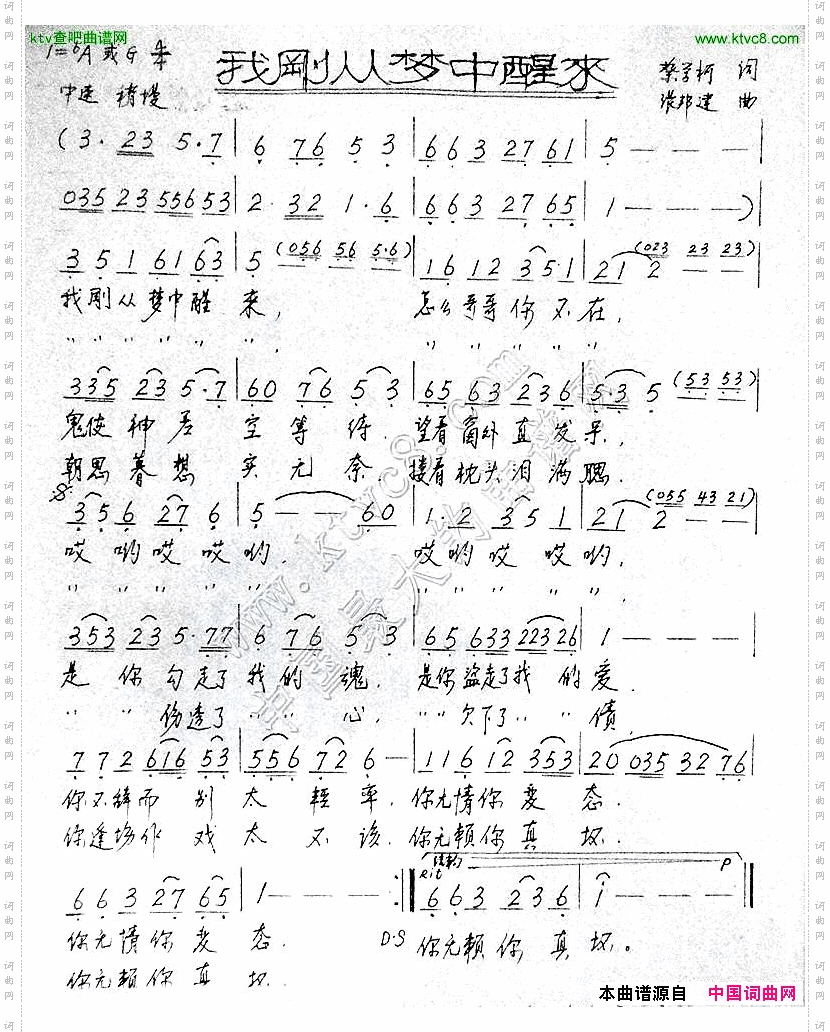 ktv查吧曲谱网
www.ktvc8.com
1=ᵇA 或 G 4/4
我剛从梦中醒來
中速 稍慢
蔡学柯 词
张邦建 曲
(3· 23 5·7 | 6 76 5 3 | 6 6 3 27 61 | 5 — — — |
035 23 5565 53 | 2· 32 1·6 | 6 6 3 27 65 | 1 — — —)
3 5 1 61 63 | 5 (056 56 5·6) | 16 12 3 51 | 21 2 — — (023 23 23)
我刚从梦中醒来， 怎么哥哥你不在，
〃 〃 〃 〃 〃 〃 〃 〃 〃
335 23 5·7 | 60 76 5 3 | 65 63 23 6 | 5·3 5 (53 53)
鬼使神差 空等待， 望着窗外直发呆，
朝思暮想 实无奈， 搂着枕头泪满腮。
3 5 6 27 6 | 5 — — 60 | 1·2 3 5 1 | 21 2 — — (055 43 21)
哎哟哎哎哟， 哎哟哎哎哟，
〃 〃 〃 〃 〃 〃 〃 〃 〃
353 23 5·77 | 6 76 5 3 | 65 633 223 26 | 1 — — —
是你勾走了我的魂， 是你盗走了我的爱，
〃 〃 伤透了 〃 〃 心， 〃〃 欠下了 〃 〃 债，
7 7 2 616 53 | 556 72 6 — | 116 12 353 | 20 035 32 76
你不辞而别太轻率， 你无情你变态，
你逢场作戏太不该， 你无赖你真坏，
6 6 3 27 65 | 1 — — — :‖ 结束句 rit 6 6 3 23 6 | 1 — — — p ‖
你无情你变态。 D·S 你无赖你真坏。
你无赖你真坏
本曲谱源自 中国词曲网
词曲网